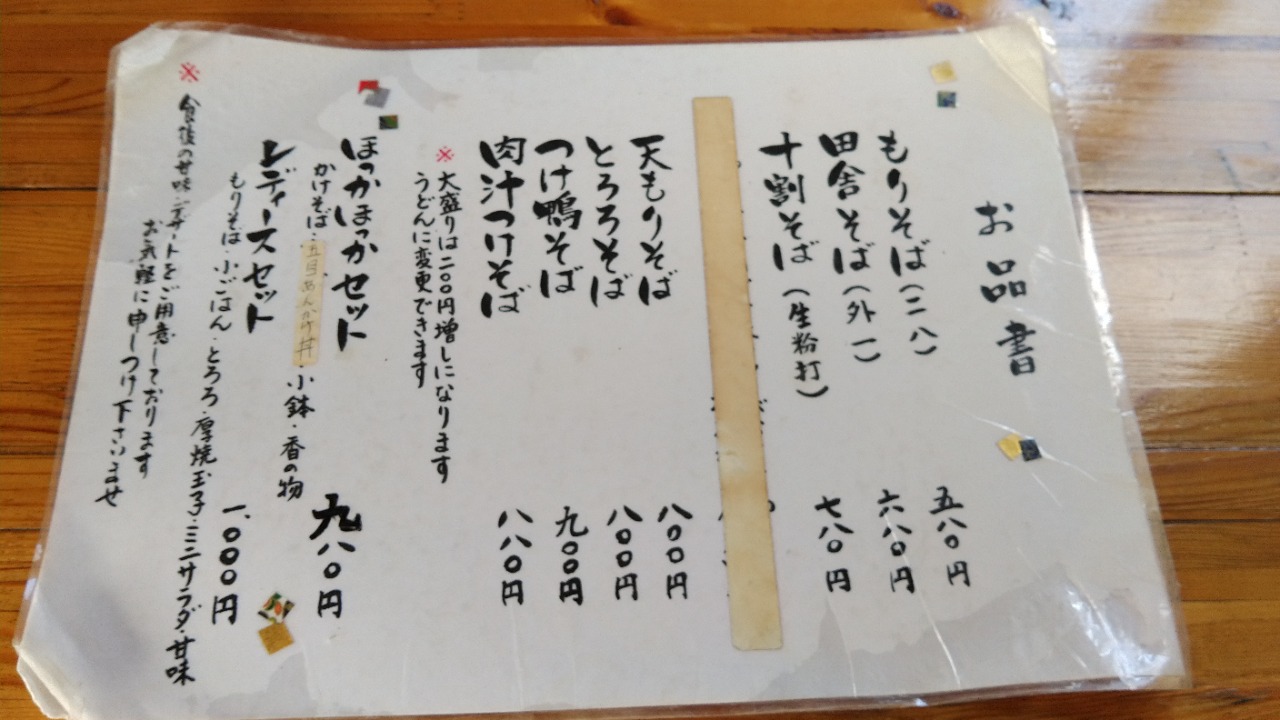 お品書
もりそば(二八) 五八〇円
田舎そば(外一) 六八〇円
十割そば(生粉打) 七八〇円
天もりそば 八〇〇円
とろろそば 八〇〇円
つけ鴨そば 九〇〇円
肉汁つけそば 八八〇円
※大盛りは二〇〇円増しになります
うどんに変更できます
ほっかほっかセット 九八〇円
かけそば・五目あんかけ丼・小鉢・香の物
レディースセット 一、〇〇〇円
もりそば・小ごはん・とろろ・厚焼玉子・ミニサラダ・甘味
※食後の甘味・デザートをご用意しております
お気軽に申しつけ下さいませ